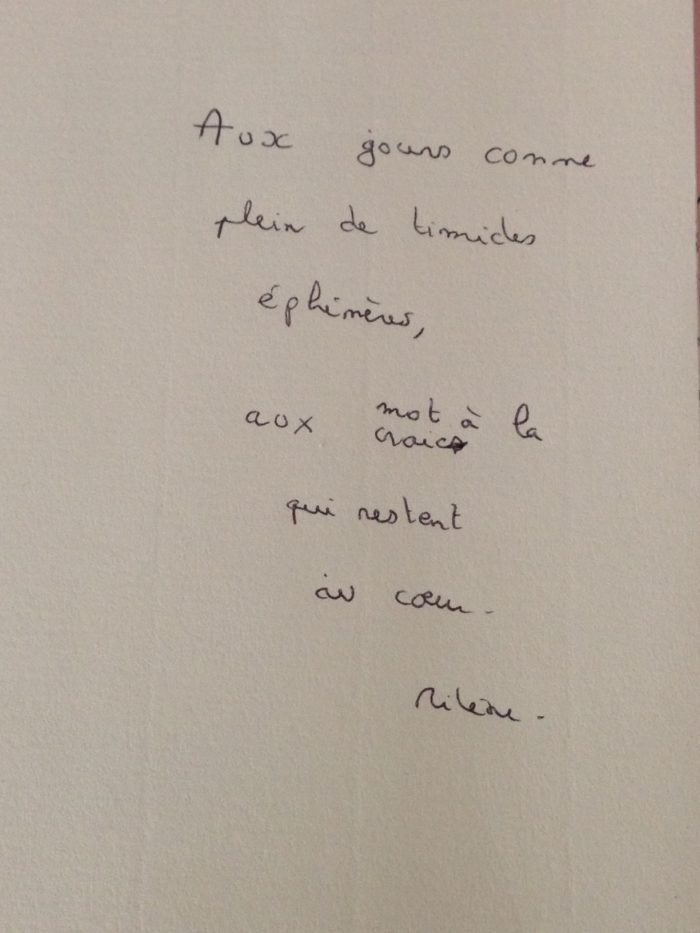 Aux jours comme
plein de timides
éphémères,
aux mot à la
craie
qui restent
au cœur.